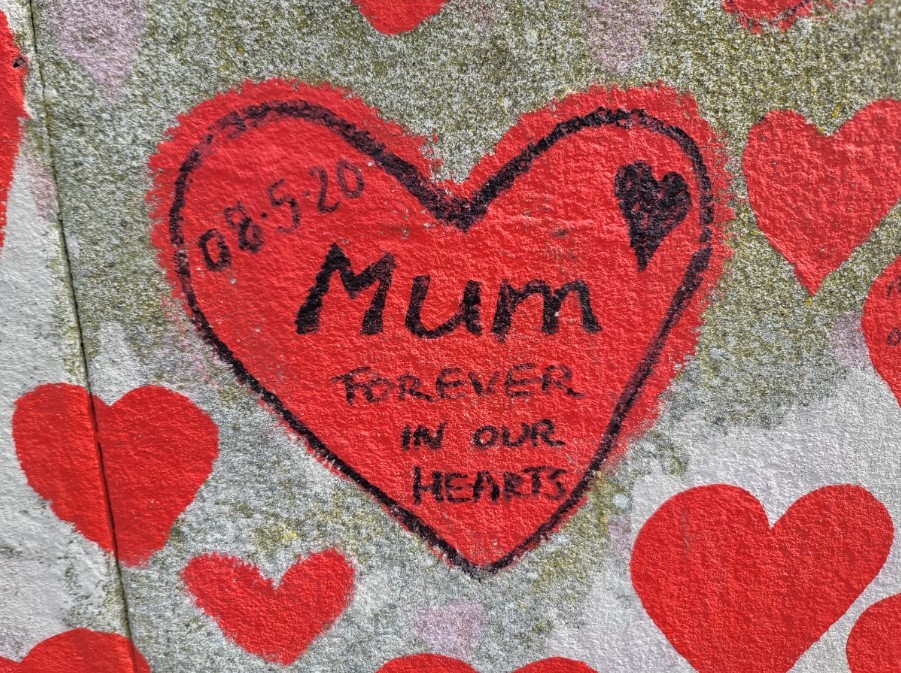 08·5·20
Mum
FOREVER
IN OUR
HEARTS